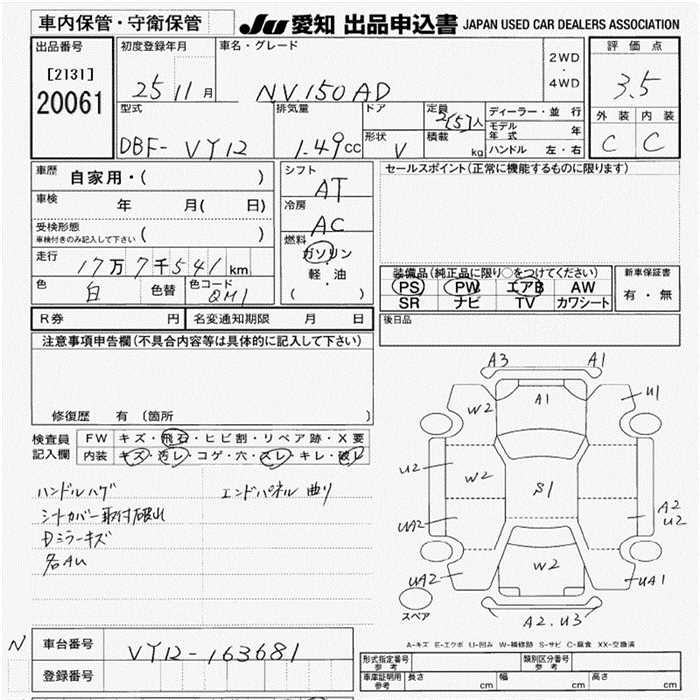 車内保管・守衛保管 JU 愛知 出品申込書 JAPAN USED CAR DEALERS ASSOCIATION
出品番号 初度登録年月 車名・グレード 2WD・4WD 評価点
[2131] 25 11月 NV150AD 3.5
20061
型式 排気量 ドア 定員 2(5)人 ディーラー・並行 外装 内装
DBF-VY12 1.49cc 形状 V 積載 kg モデル年式 年 C C
ハンドル 左・右
車歴 自家用・( ) シフト AT セールスポイント(正常に機能するものに限ります)
車検 年 月( 日) 冷房 AC
受検形態 車検付きのみ記入して下さい ( ) 燃料 ガソリン
走行 17万7千541km 軽・油
( )
色 白 色替 色コード QM1
装備品(純正品に限り○をつけてください) 新車保証書
PS PW エアB AW 有・無
SR ナビ TV カワシート
R券 円 名変通知期限 月 日 後日品
注意事項申告欄(不具合内容等は具体的に記入して下さい)
修復歴 有(箇所 )
検査員記入欄 FW キズ・飛石・ヒビ割・リペア跡・X要
内装 キズ・汚レ・コゲ・穴・スレ・キレ・破レ
ハンドルハゲ エンドパネル曲り
シートカバー取付破れ
Dミラーキズ
各AU
A3 A1
W2 A1 U1
U2 W2
S1
UA2 A2 U2
W2
UA2 UA1
スペア A2.U3
A-キズ E-エクボ U-凹み W-補修跡 S-サビ C-腐食 XX-交換済
N 車台番号 VY12-163681
登録番号
形式指定番号 参考 類別区分番号 参考
車庫証明用 参考 長さ cm 幅 cm 高さ cm